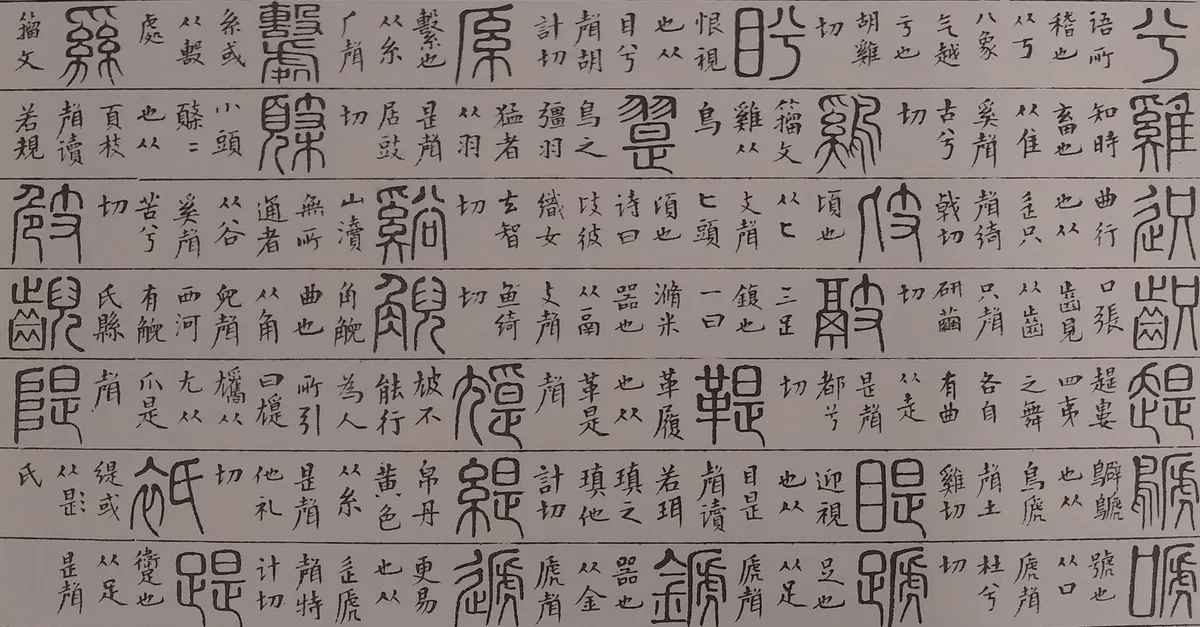 兮語所稽也从丂八象气越亏也胡雞切盻恨視也从目兮聲胡計切系繫也从糸厂聲系或从毄處籀文
雞知時畜也从隹奚聲古兮切鷄籀文雞从鳥翨鳥之彊羽猛者从羽是聲居豉切䫌小頭䫌〻也从頁枝聲讀若規
迟曲行也从辵只聲綺戟切頃也从匕支聲匕頭頃也詩曰彼織女去智切谿山瀆無所通者从谷奚聲苦兮切㩻
齞口張齒見从齒只聲研繭切䰙三足鍑也一曰滫米器也从鬲支聲魚綺切觬角觬曲也从角兒聲西河有觬氏縣齯
趧趧婁四夷之舞各自有曲从走是聲都兮切鞮革履也从革是聲不能行為人所引曰从尢从爪是聲隄
鷈鷿鷈也从鳥虒聲土雞切睼迎視也从目是聲讀若珥瑱之瑱他計切緹帛丹黃色从糸是聲他礼切衹緹或从氏
嗁號也从口虒聲杜兮切蹏足也从足虒聲器也从金虒聲遞更易也从辵虒聲特計切踶躗也从足是聲